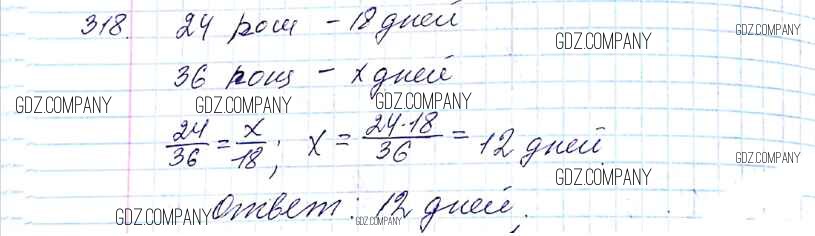 318. 24 рош – 18 дней
GDZ.COMPANY GDZ.COMPANY
36 рош – x дней
GDZ.COMPANY GDZ.COMPANY GDZ.COMPANY
24/36 = x/18; x = 24·18/36 = 12 дней
GDZ.COMPANY
GDZ.COMPANY
Ответ: 12 дней.
GDZ.COMPANY GDZ.COMPANY